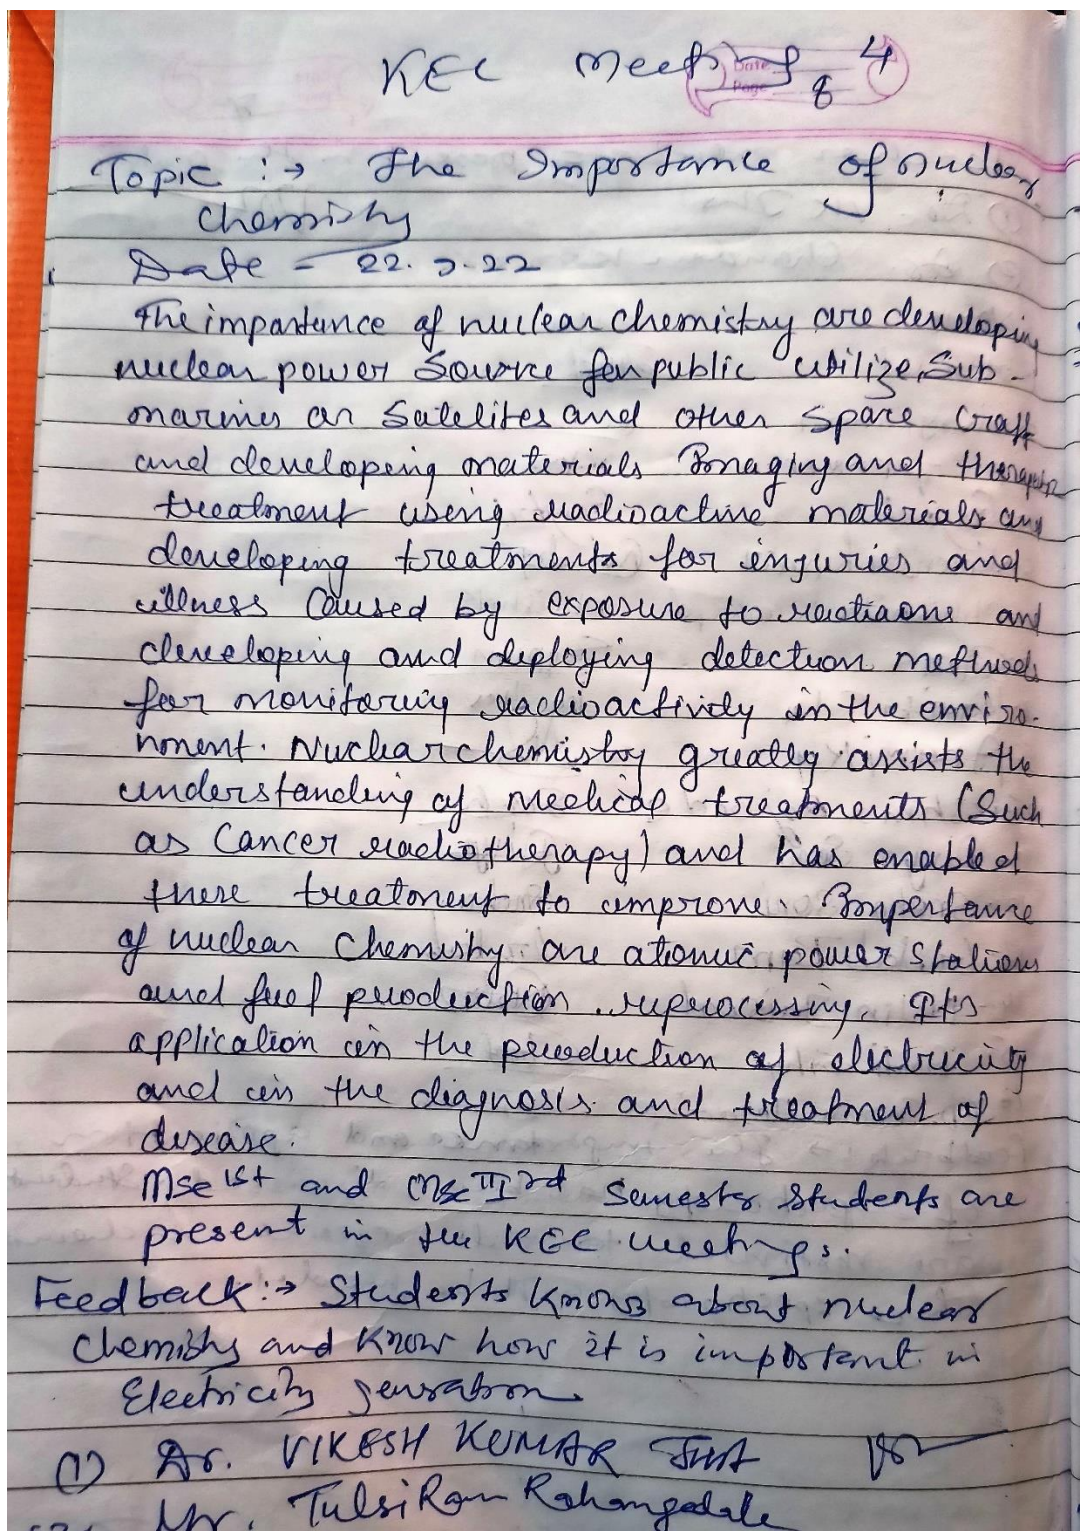 KEC Meeting 4
Date
Page 8
Topic :→ The Importance of nuclear
chemistry
Date - 22.9.22
The importance of nuclear chemistry are developing
nuclear power Source for public utilize, Sub-
marines or Satelites and other space craft
and developing materials Imaging and
treatment using radioactive materials and
developing treatments for injuries and
illness Caused by exposure to and
developing and deploying detection methods
for monitoring radioactivity in the enviro-
nment. Nuclear chemistry greatly assists the
understanding of medical treatments (Such
as Cancer radiotherapy) and has enabled
these treatment to improve. Importance
of nuclear Chemistry are atomic power Stations
and fuel production reprocessing. It's
application in the production of electricity
and in the diagnosis and treatment of
disease.
MSc 1st and MSc IIIrd Semester Students are
present in the KEC meetings.
Feedback :→ Students knows about nuclear
Chemistry and know how it is important in
Electricity generation
(1) Dr. VIKESH KUMAR JHA
Mr. TulsiRam Rahangdale